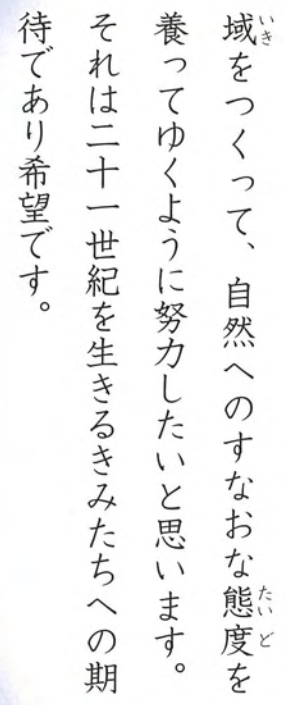 域をつくって、自然へのすなおな態度を
養ってゆくように努力したいと思います。
それは二十一世紀を生きるきみたちへの期
待であり希望です。